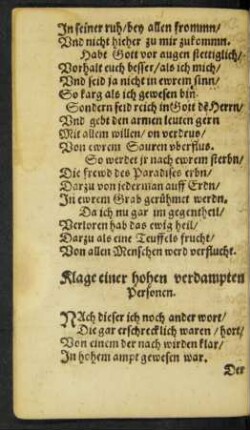 In seiner ruh/bey allen frommn/
Vnd nicht hieher zu mir zukommn.
Habt Gott vor augen stettiglich/
Vorhalt euch besser/als ich mich/
Vnd seid ja nicht in ewrem sinn/
So karg als ich gewesen bin.
Sondern seid reich in Gott dē Herrn/
Vnd gebt den armen leuten gern
Mit allem willen/on verdrus/
Von ewrem Sauren vberflus.
So werdet jr nach ewrem sterbn/
Die frewd des Paradises erbn/
Darzu von jederman auff Erdn/
In ewrem Grab gerühmet werdn.
Da ich nu gar im gegentheil/
Verloren hab das ewig heil/
Darzu als eine Teuffels frucht/
Von allen Menschen werd verflucht.
Klage einer hohen verdampten
Personen.
NAch dieser ich noch ander wort/
Die gar erschrecklich waren/hort/
Von einem der nach wirden klar/
In hohem ampt gewesen war.
Der